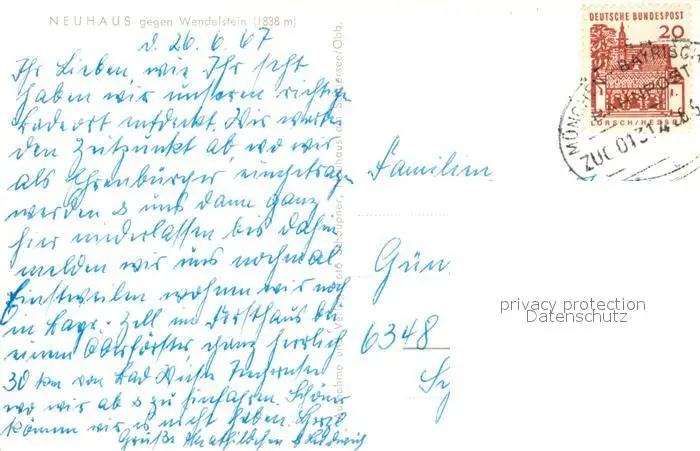 NEUHAUS gegen Wendelstein (1838 m)
d. 26.6.67
Ihr Lieben, wie Ihr seht
haben wir unseren richtigen
Badeort entdeckt. Wir warten
den Zeitpunkt ab, wo wir
als Ehrenbürger eingetragen
werden & uns dann ganz
hier niederlassen bis dahin
melden wir uns nochmal
Einstweilen wohnen wir noch
in Bayr. Zell im Forsthaus bei
einem Oberförster, ganz herrlich
30 km von Bad
wo wir ab & zu hinfahren. Schöner
können wir es nicht haben. Herzl.
Grüße Mathildchen & Ludwig
Familien
Gün
6348
DEUTSCHE BUNDESPOST
20
LORSCH/HESSEN
MÜNCHEN - BAYRISCH
BAHNPOST
ZUG 01314
privacy protection
Datenschutz